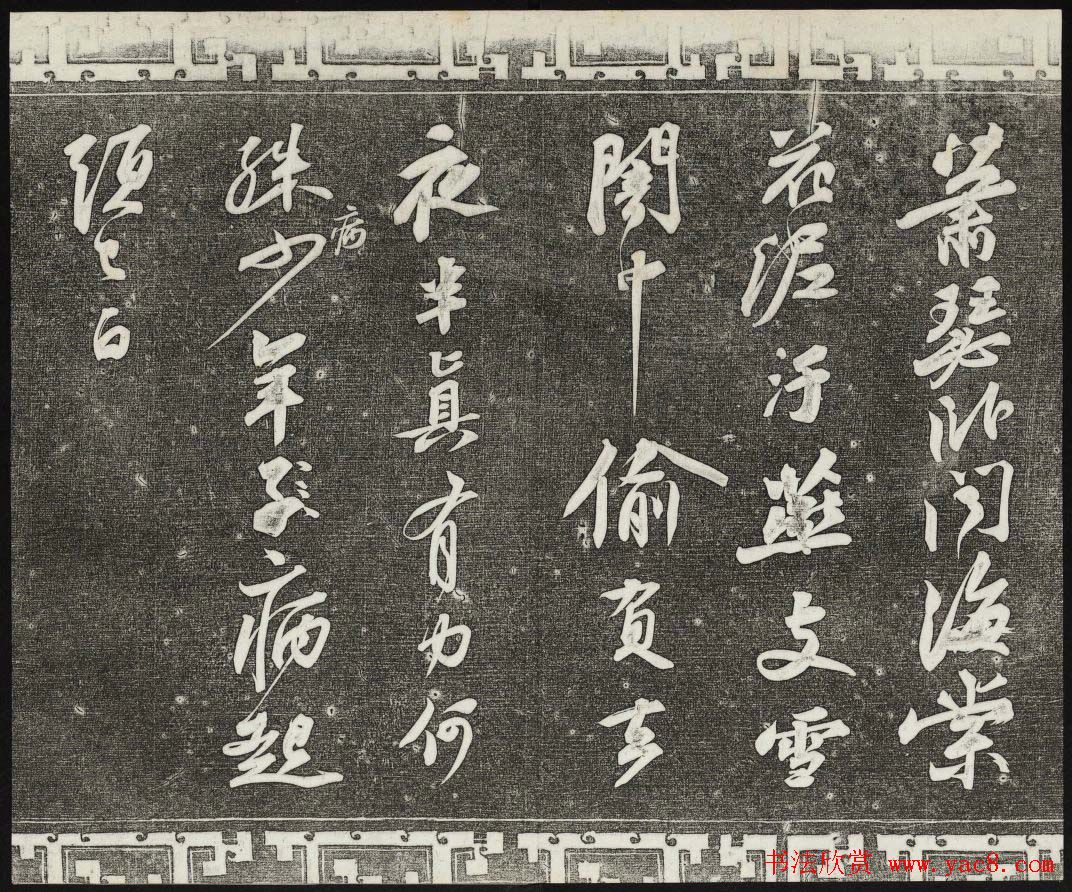 蕭瑟卧聞海棠
花泥汙燕支雪
闇中偷負去
夜半真有力何
殊病少年子病起
頭已白
书法欣赏 www.yac8.com